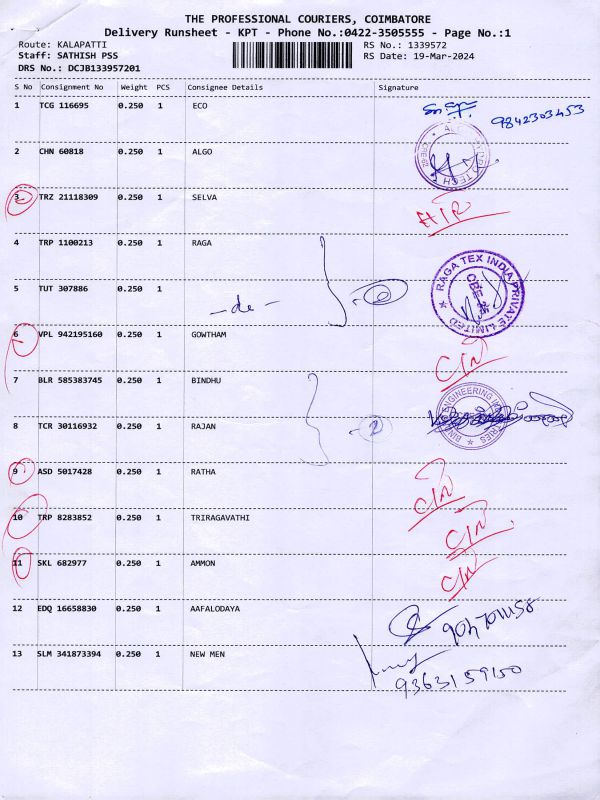 THE PROFESSIONAL COURIERS, COIMBATORE
Delivery Runsheet - KPT - Phone No.:0422-3505555 - Page No.:1
Route: KALAPATTI RS No.: 1339572
Staff: SATHISH PSS RS Date: 19-Mar-2024
DRS No.: DCJB133957201
S No Consignment No Weight PCS Consignee Details Signature
1 TCG 116695 0.250 1 ECO
9842303453
2 CHN 60818 0.250 1 ALGO
3 TRZ 21118309 0.250 1 SELVA
4 TRP 1100213 0.250 1 RAGA
RAGA TEX INDIA PRIVATE LIMITED
5 TUT 307886 0.250 1 -do-
6 VPL 942195160 0.250 1 GOWTHAM
C/N
7 BLR 585383745 0.250 1 BINDHU
8 TCR 30116932 0.250 1 RAJAN 2
9 ASD 5017428 0.250 1 RATHA
C/N
10 TRP 8283852 0.250 1 TRIRAGAVATHI
C/N
11 SKL 682977 0.250 1 AMMON
C/N
12 EDQ 16658830 0.250 1 AAFALODAYA
13 SLM 341873394 0.250 1 NEW MEN
9363159150